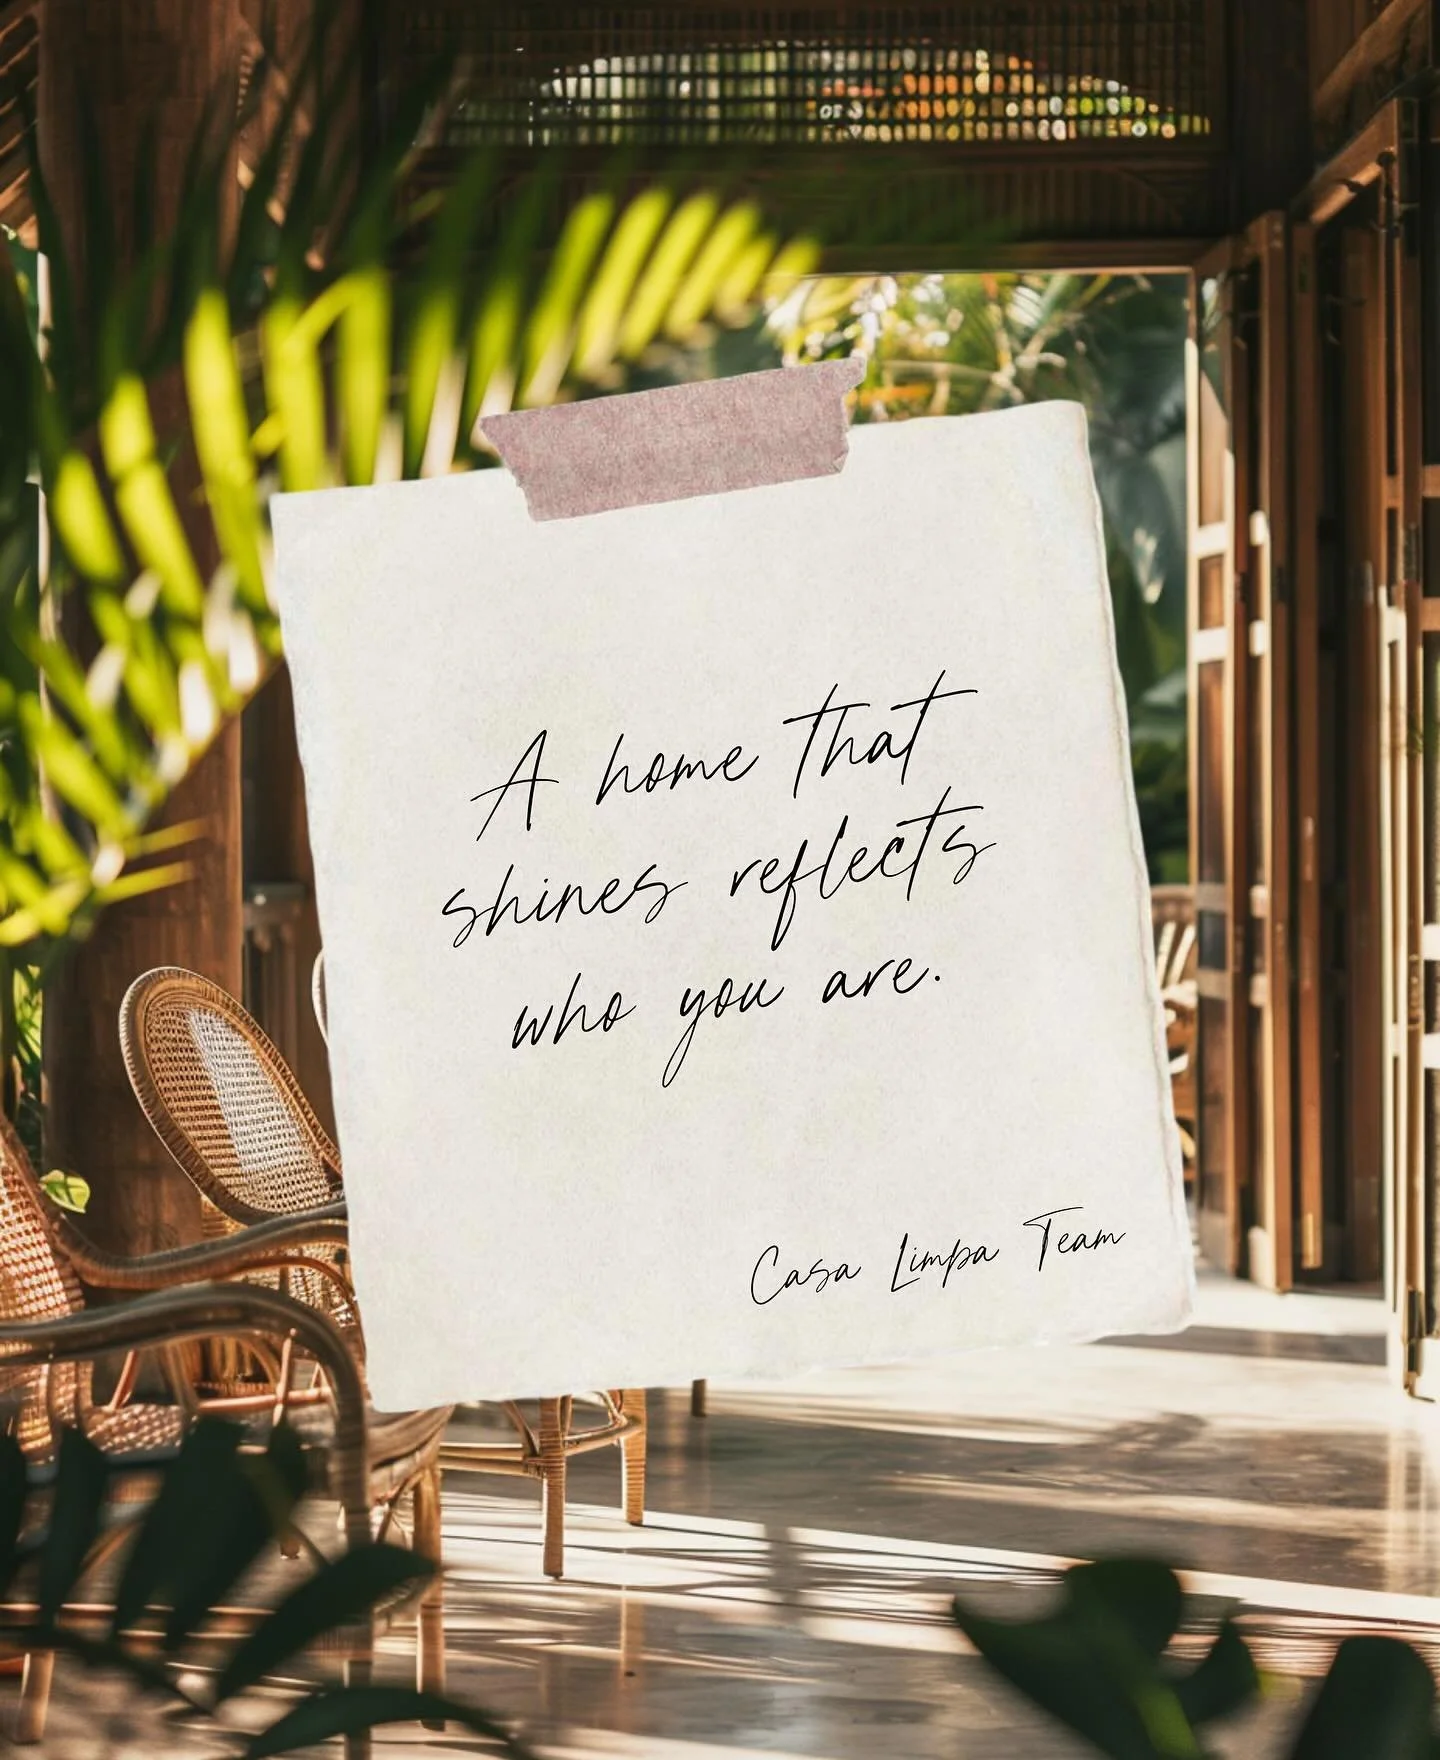 A home that
shines reflects
who you are.
Casa Limpa Team